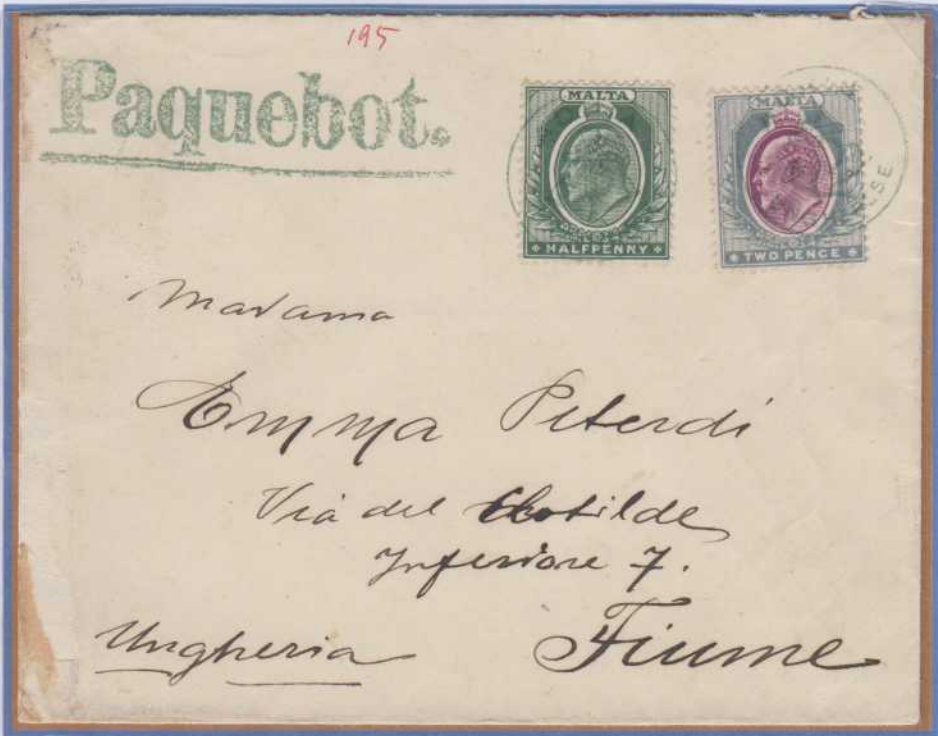 195
Paquebot.
MALTA
HALFPENNY
MALTA
TWO PENCE
Madama
Emma Peterdi
Via del Clotilde
Inferiore 7.
Ungheria Fiume